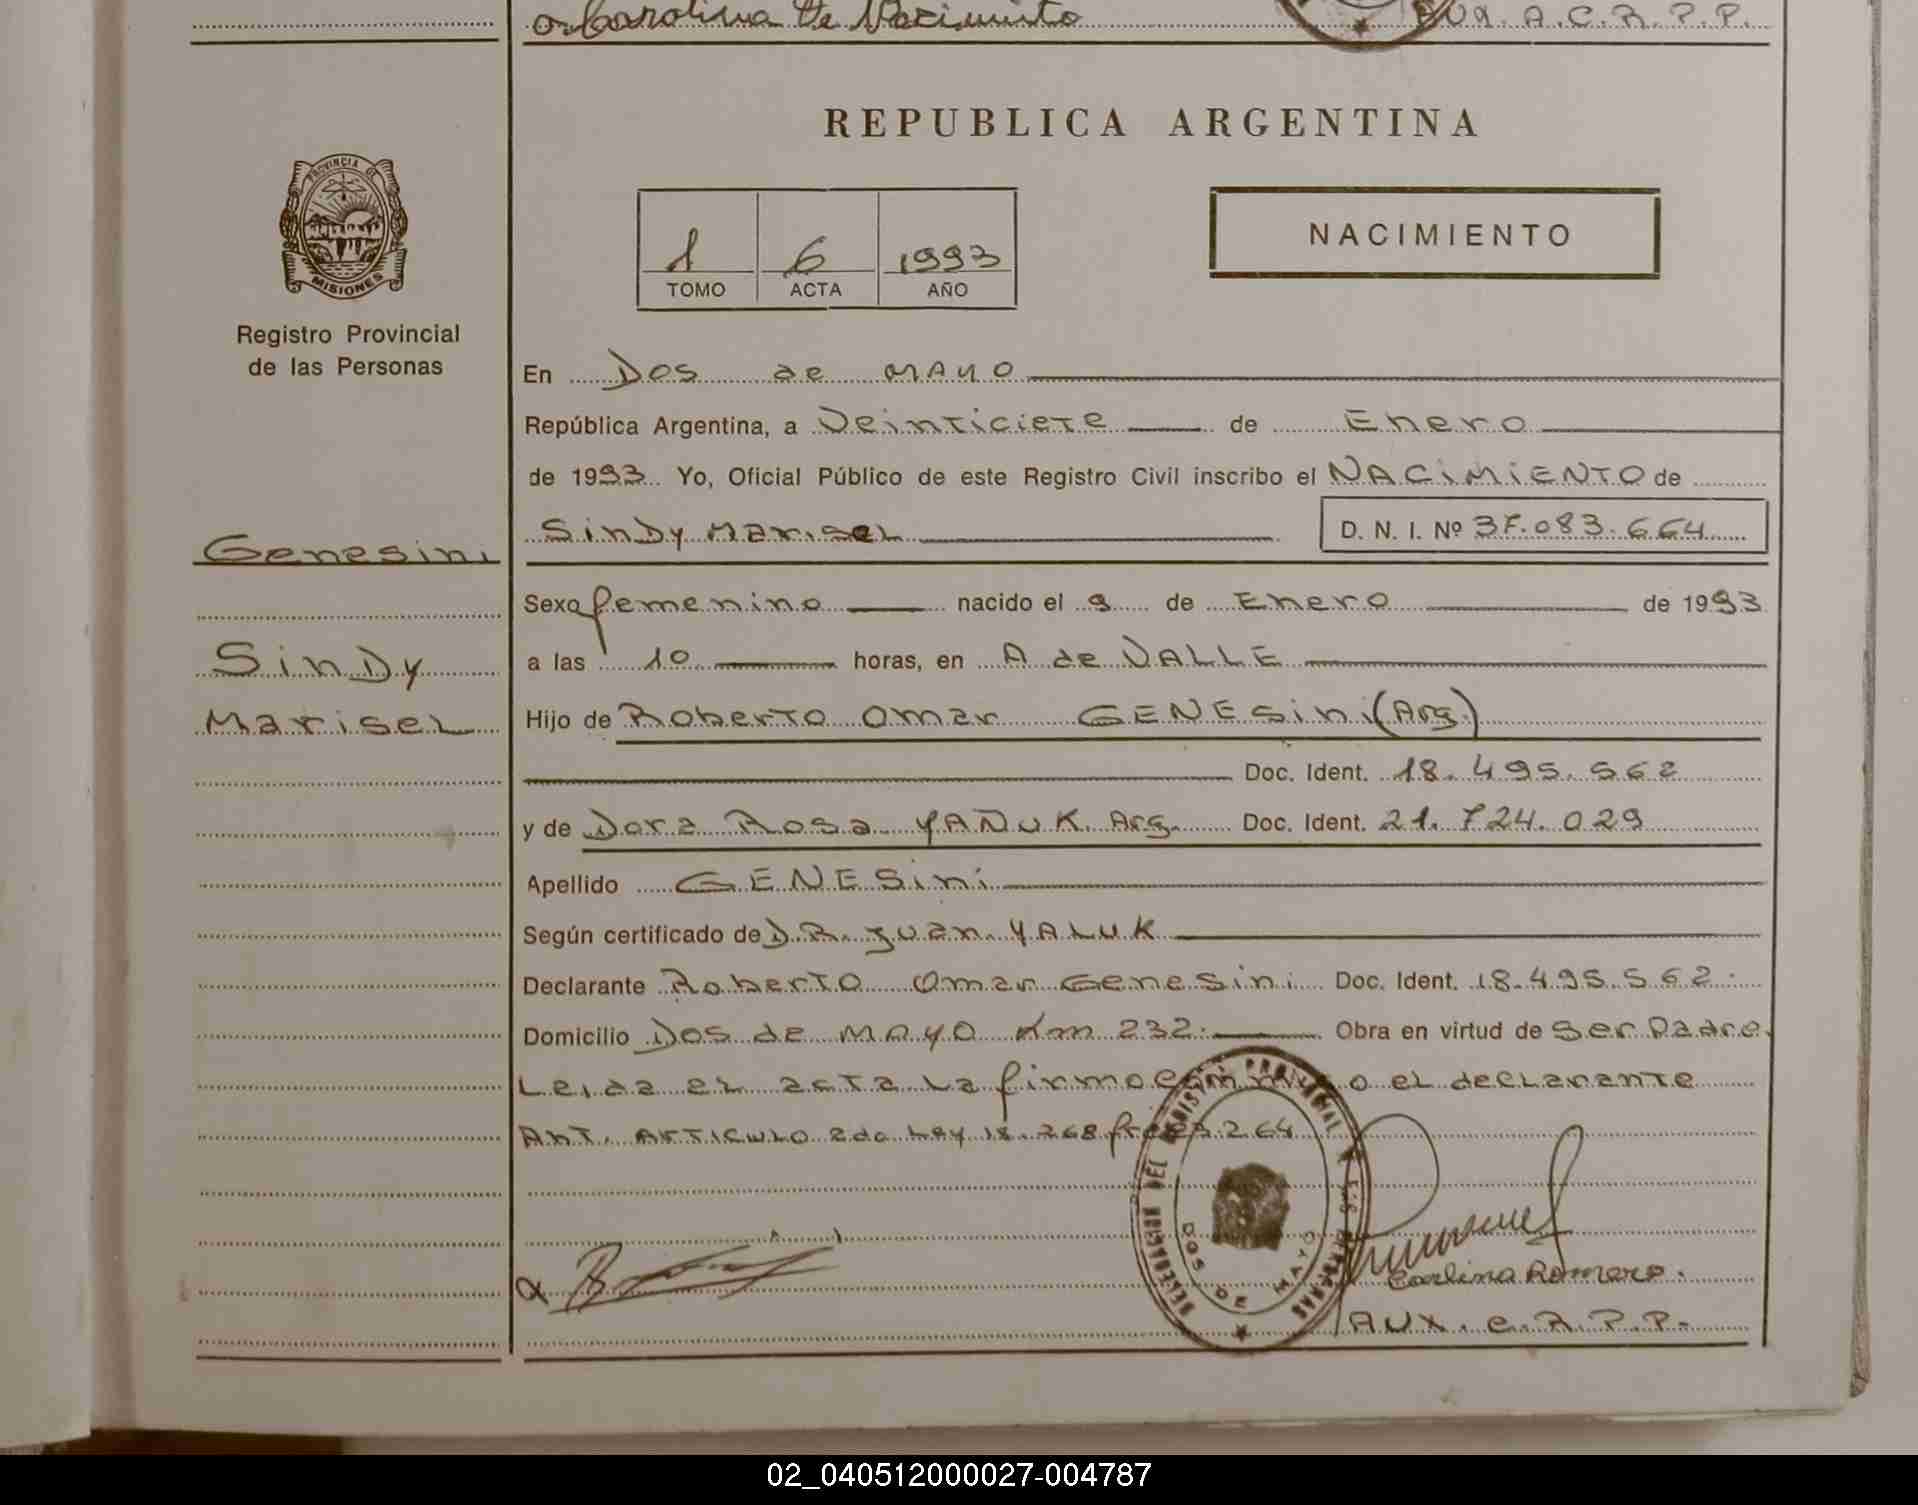 o Carolina De Nacimiento
AUX. A.C.R.P.P.
REPUBLICA ARGENTINA
PROVINCIA DE
MISIONES
Registro Provincial
de las Personas
1 6 1993
TOMO ACTA AÑO
NACIMIENTO
En Dos de MAYO
República Argentina, a Veinticiete de Enero
de 1993 Yo, Oficial Público de este Registro Civil inscribo el NACiMiENTO de
Sindy Marisel D. N. I. Nº 37.083.664
Genesini
Sexo femenino nacido el 9 de Enero de 1993
Sindy
a las 10 horas, en A de VALLE
Marisel
Hijo de Roberto Omar GENESini (Arg.)
Doc. Ident. 18.495.562
y de Dora Rosa YAÑUK Arg. Doc. Ident. 21.724.029
Apellido GENESini
Según certificado de DR. Juan YALUK
Declarante Roberto Omar Genesini Doc. Ident. 18.495.562.
Domicilio Dos de MAYO Km 232. Obra en virtud de Ser Padre.
Leida el acta la firmo el declarante
Ant. Articulo 2do Ley 18.268 264
DELEGACION DEL REGISTRO PROVINCIAL DE LAS PERSONAS
DOS DE MAYO
Carlina Romero.
AUX. C.R.P.P.
02_040512000027-004787